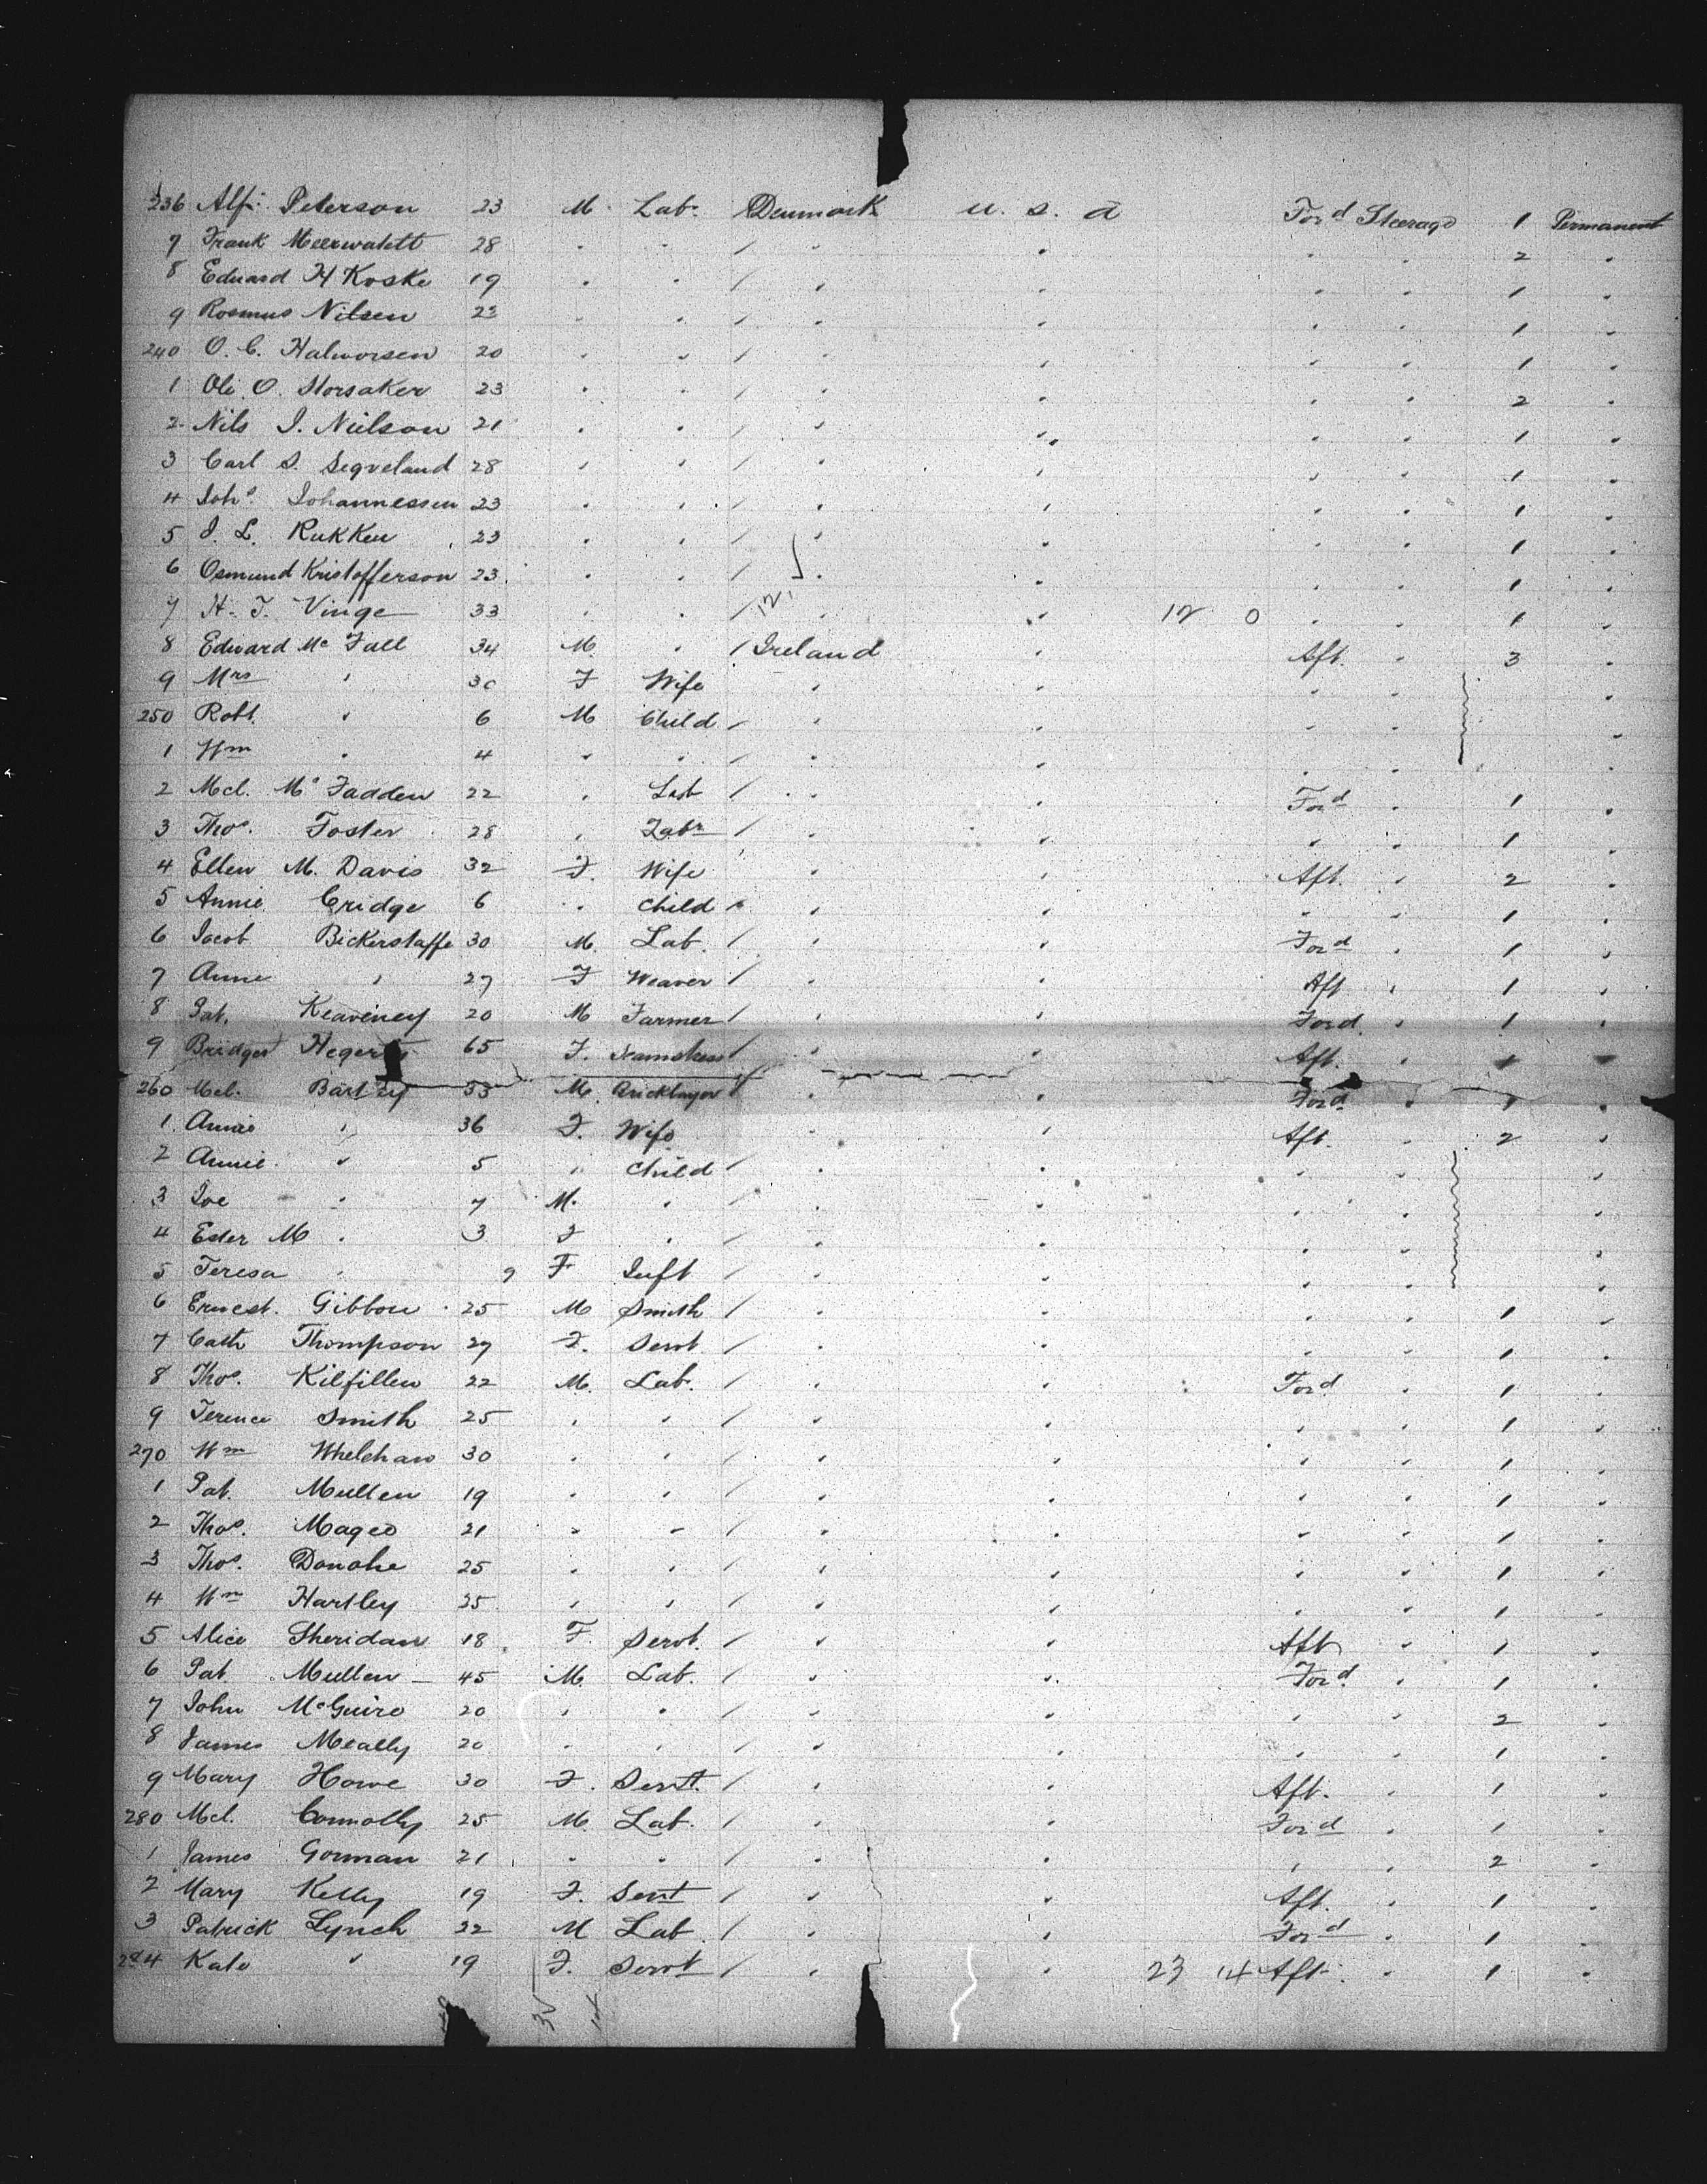 236 Alf. Peterson 23 M. Lab. Denmark U. S. A Ford Steerage 1 Permanent
7 Frank 28 " " / " " " " 2 "
8 Eduard H Koske 19 " " / " " " " 1 "
9 Rasmus Nilsen 23 " " / " " " " 1 "
240 O. C. Halvorsen 20 " " / " " " " 1 "
1 Ole O. Storsaker 23 " " / " " " " 2 "
2 Nils J. Nielson 21 " " / " " " " 1 "
3 Carl S. Segveland 28 " " / " " " " 1 "
4 Johs. Johannessen 23 " " / " " " " 1 "
5 J. L. Rukken 23 " " / " " " " 1 "
6 Osmund Kristofferson 23 " " / " " " " 1 "
7 H. T. Vinge 33 " " / 12 " " 12 0 " " 1 "
8 Edward Mc Fall 34 M. " / Ireland " Aft. " 3 "
9 Mrs " 30 F Wife " " " " "
250 Robt. " 6 M Child / " " " " "
1 Wm " 4 " " / " " " " "
2 Mcl. Mc Fadden 22 " Lab / " " Ford " 1 "
3 Thos. Foster 28 " Labr / " " " " 1 "
4 Ellen M. Davis 32 F. Wife " " Aft. " 2 "
5 Annie Cridge 6 " Child " " " " 1 "
6 Jacob Bickerstaffe 30 M. Lab. / " " Ford " 1 "
7 Anne " 27 F Weaver / " " Aft " 1 "
8 Pat. Keaveney 20 M Farmer / " " Ford. " 1 "
9 Bridget 65 F. / " " Aft. " 1 "
260 Mcl. Bartley 33 M. Bricklayer / " " Ford " 1 "
1 Annie " 36 F. Wife " " Aft. " 2 "
2 Annie " 5 " Child / " " " " "
3 Joe " 7 M. " / " " " " "
4 Ester M " 3 F " / " " " " "
5 Teresa " 9 F Inft / " " " " "
6 Ernest. Gibbon 25 M Smith / " " " " 1 "
7 Cath Thompson 27 F. Servt. / " " " " 1 "
8 Thos. Kilfillen 22 M. Lab. / " " Ford " 1 "
9 Terence Smith 25 " " / " " " " 1 "
270 Wm Whelehan 30 " " / " " " " 1 "
1 Pat. Mullen 19 " " / " " " " 1 "
2 Thos. Magee 21 " " / " " " " 1 "
3 Thos. Donohe 25 " " / " " " " 1 "
4 Wm Hartley 25 " " / " " " " 1 "
5 Alice Sheridan 18 F. Servt. / " " Aft " 1 "
6 Pat Mullen 45 M. Lab. / " " Ford. " 1 "
7 John McGuire 20 " " / " " " " 2 "
8 James Meally 20 " " / " " " " 1 "
9 Mary Howe 30 F. Servt. / " " Aft. " 1 "
280 Mcl. Connolly 25 M Lab. / " " Ford " 1 "
1 James Gorman 21 " " / " " " " 2 "
2 Mary Kelly 19 F. Servt / " " Aft. " 1 "
3 Patrick Lynch 22 M Lab. / " " Ford " 1 "
284 Kate " 19 F. Servt / " " 23 14 Aft. " 1 "